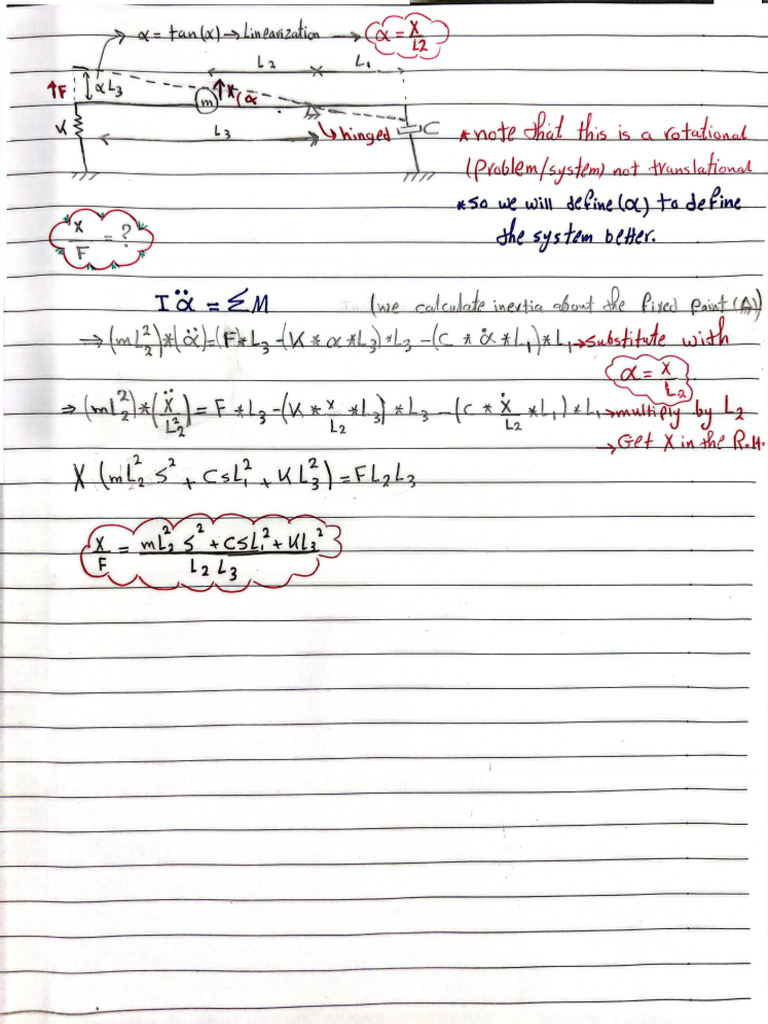 α = tan(α) → Linearization → α = X/L2
L2 L1
↑F αL3 m ↑x α
K L3 hinged C *note that this is a rotational
(problem/system) not translational
*so we will define (α) to define
the system better.
X/F = ?
I α̈ = ΣM (we calculate inertia about the fixed point (A))
⇒ (mL2²)*(α̈) = (F*L3 - (K * α * L3) * L3 - (C * α̇ * L1) * L1 → substitute with
α = X/L2
⇒ (mL2²)*(Ẍ/L2²) = F * L3 - (K * x/L2 * L3) * L3 - (C * Ẋ/L2 * L1) * L1 → multiply by L2
→ Get X in the R.H.
X (mL2² S² + CSL1² + KL3²) = FL2L3
X/F = mL2² S² + CSL1² + KL3² / L2 L3